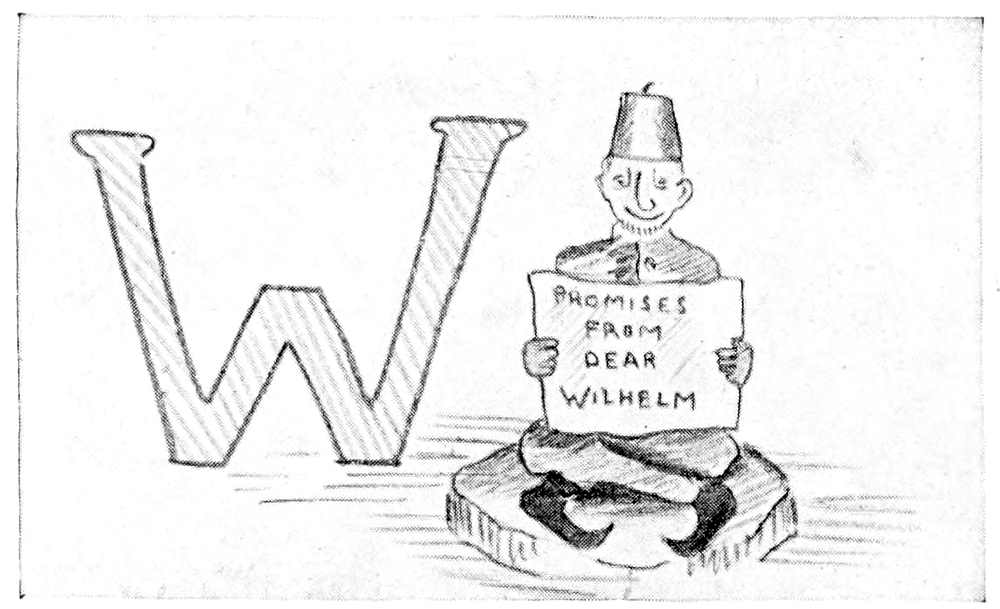 W
PROMISES
FROM
DEAR
WILHELM